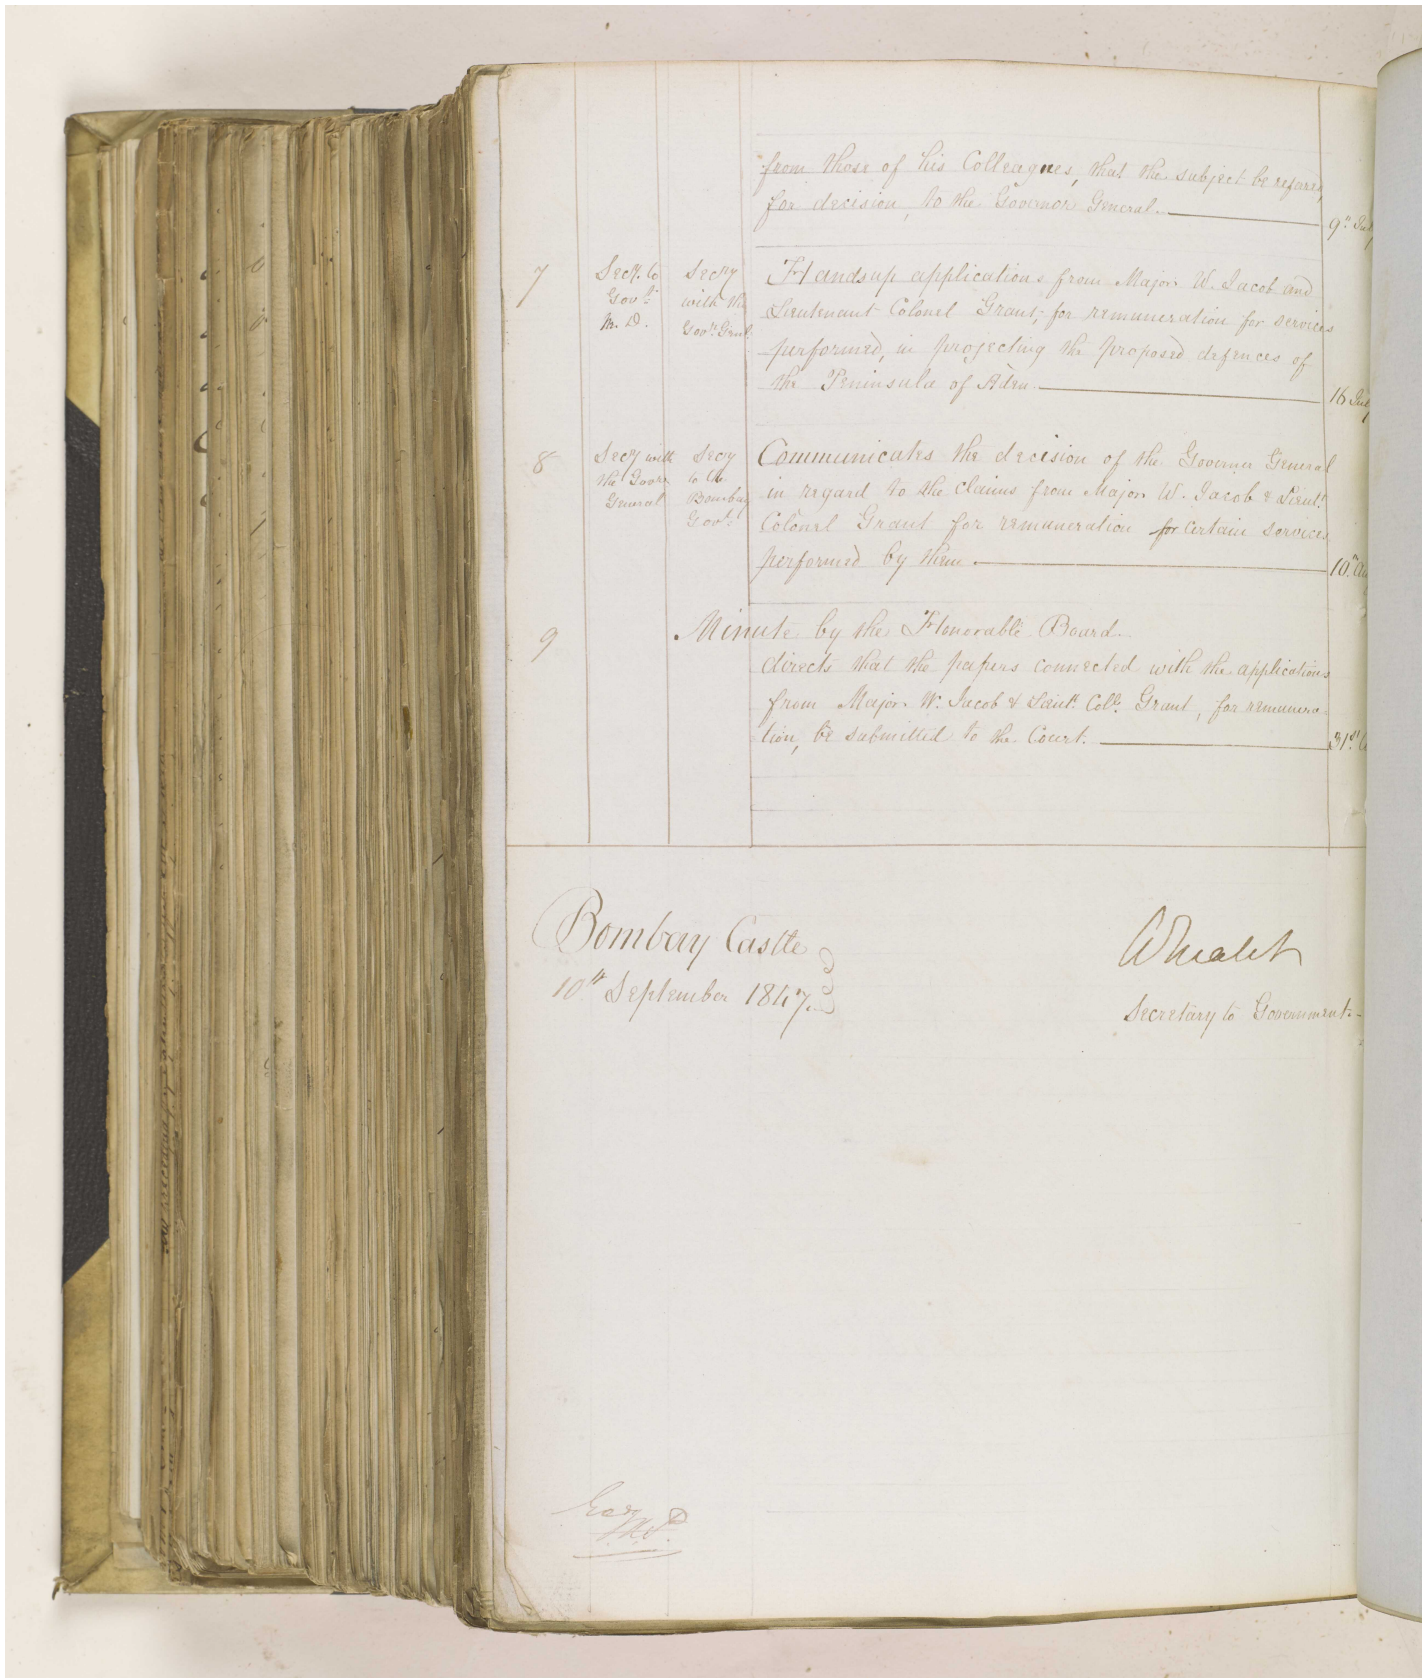 from those of his Colleagues, that the subject be referred,
for decision, to the Governor General.
9th July
7
Secy. to
Govt.
M. D.
Secry
with the
Govr. Genl.
Hands up applications from Major W. Jacob and
Lieutenant Colonel Grant, for remuneration for services
performed, in projecting the proposed defences of
the Peninsula of Aden.
16 July
8
Secy with
the Govr.
General
Secry
to the
Bombay
Govt.
Communicates the decision of the Governor General
in regard to the claims from Major W. Jacob & Lieut.
Colonel Grant for remuneration for certain services
performed by them
10th
9
Minute by the Honorable Board.
directs that the papers connected with the applications
from Major W. Jacob & Lieut. Coll. Grant, for remunera-
tion, be submitted to the Court.
31st
Bombay Castle
10th September 1847.
Secretary to Government.